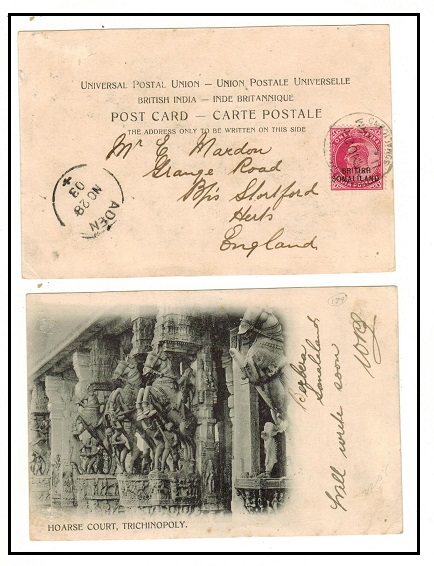 UNIVERSAL POSTAL UNION — UNION POSTALE UNIVERSELLE
BRITISH INDIA — INDE BRITANNIQUE
POST CARD — CARTE POSTALE
THE ADDRESS ONLY TO BE WRITTEN ON THIS SIDE
Mr E Mardon
Grange Road
B/ps Stortford
Herts
England
ADEN
NO 28
03
BRITISH
SOMALILAND
179
Berbera
Somaliland
Will write soon
HOARSE COURT, TRICHINOPOLY.